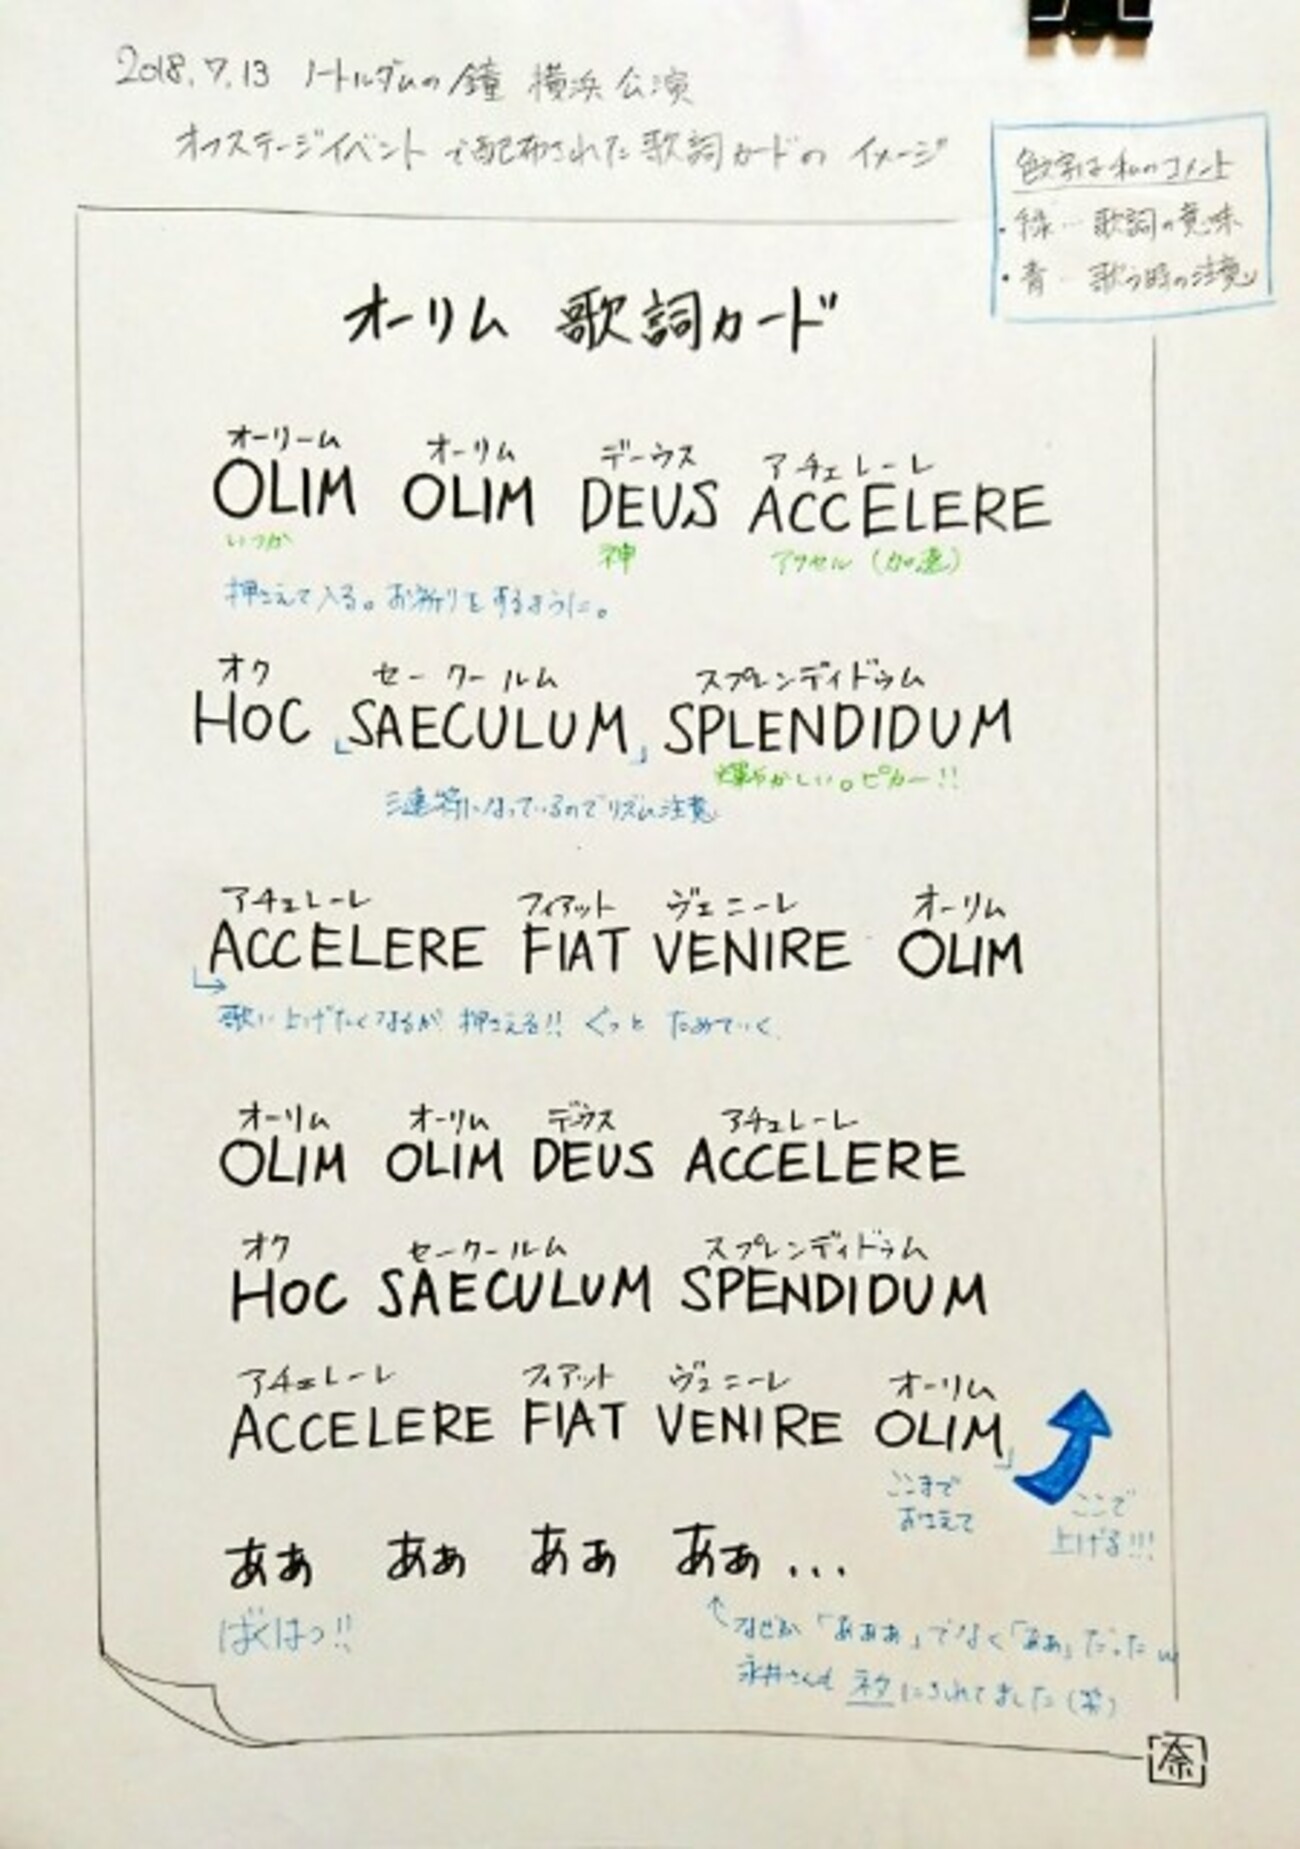 2018.7.13 ノートルダムの鐘 横浜公演
オフステージイベントで配布された歌詞カードのイメージ
色文字は私のコメント
・緑…歌詞の意味
・青…歌う時の注意
オーリム 歌詞カード
オーリーム オーリム デーウス アチェレーレ
OLIM OLIM DEUS ACCELERE
いつか 神 アクセル(加速)
押さえて入る。お祈りをするように。
オク セークールム スプレンディドゥム
HOC 「SAECULUM」 SPLENDIDUM
輝やかしい。ピカー!!
三連符になっているのでリズム注意
アチェレーレ フィアット ヴェニーレ オーリム
ACCELERE FIAT VENIRE OLIM
歌い上げたくなるが押さえる!! ぐっと ためていく
オーリム オーリム デウス アチェレーレ
OLIM OLIM DEUS ACCELERE
オク セークールム スプレンディドゥム
HOC SAECULUM SPENDIDUM
アチェレーレ フィアット ヴェニーレ オーリム
ACCELERE FIAT VENIRE OLIM」
ここまで
おさえて
ここで
上げる!!!
ああ ああ ああ ああ...
ばくはつ!!
↑なぜか「あああ」でなく「ああ」だったw
永井さんもネタにされてました(笑)
奈